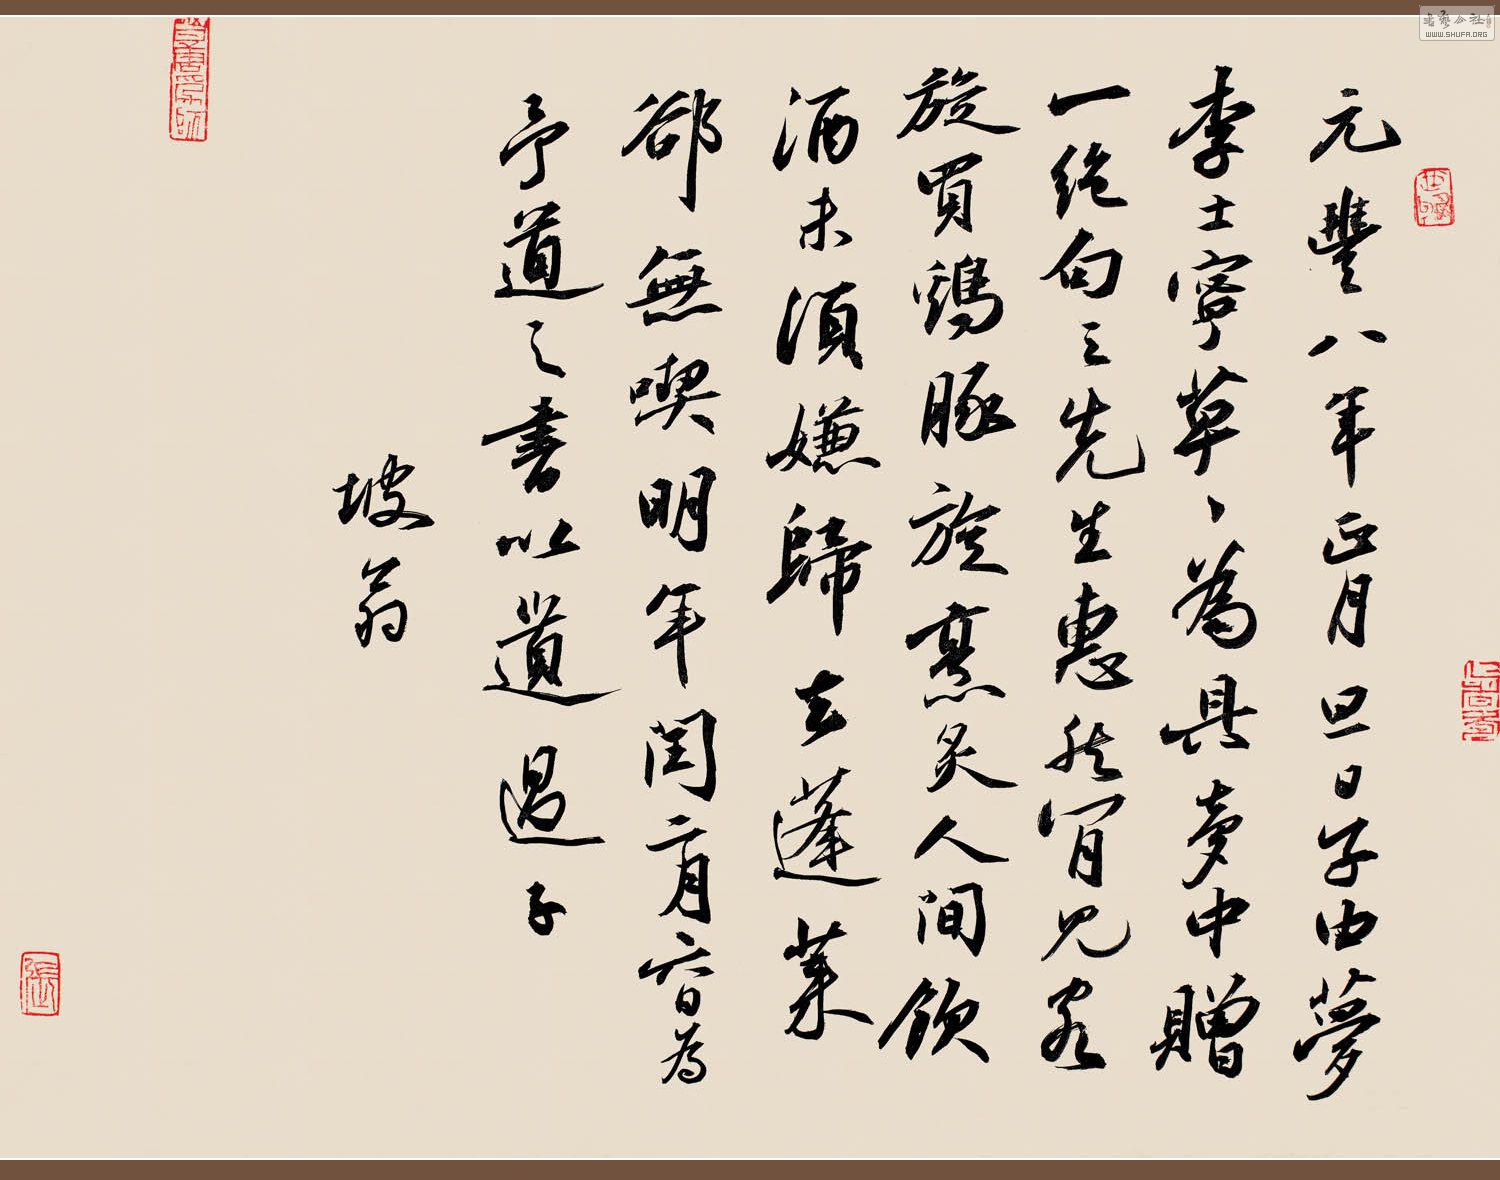 元豐八年正月旦日子由夢
李士寧草〻為具夢中贈
一絶句云先生惠然肯見客
旋買鷄豚旋烹炙人間飲
酒未須嫌歸去蓬萊
卻無喫明年閏二月六日為
予道之書以遺過子
坡翁
書藝公社
WWW.SHUFA.ORG